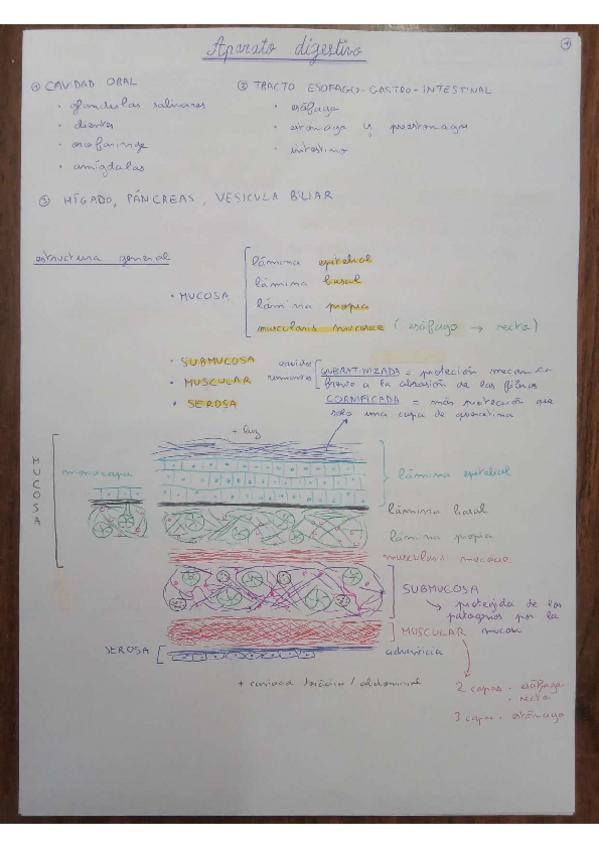 Aparato digestivo
① CAVIDAD ORAL
• glandulas salivares
• dientes
• orofaringe
• amígdalas
② TRACTO ESOFAGO-GASTRO-INTESTINAL
• esófago
• estómago y preestomagos
• intestino
③ HÍGADO, PÁNCREAS, VESICULA BILIAR
estructura general
• MUCOSA
lámina epitelial
lámina basal
lámina propia
muscularis mucosae (esófago → recto)
• SUBMUCOSA
• MUSCULAR
• SEROSA
équidos
rumiantes
QUERATINIZADA = protección mecanica
frente a la abrasión de las fibras
CORNIFICADA = más protección que
solo una capa de queratina
+ luz
MUCOSA
monocapa
lámina epitelial
lámina basal
lámina propia
muscularis mucosae
SUBMUCOSA
↳ protegida de los
patógenos por la
mucosa
MUSCULAR
SEROSA
adventicia
+ cavidad torácica / abdominal
2 capas - esófago
- recto
3 capas - estómago